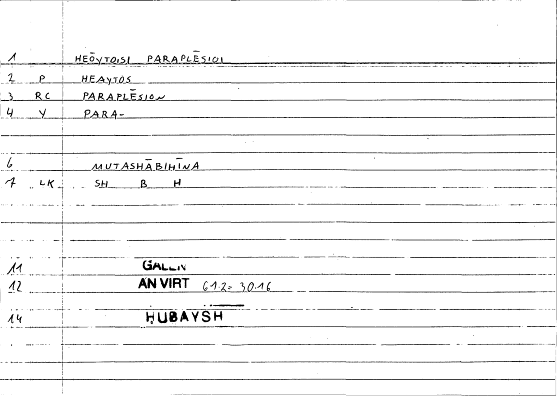 1 HEŌYTOISI PARAPLĒSIOI
2 P HEAYTOS
3 RC PARAPLĒSION
4 Y PARA-
6 MUTASHĀBIHĪNA
7 LK SH B H
11 GALEN
12 AN VIRT 61.2= 30.16
14 HUBAYSH